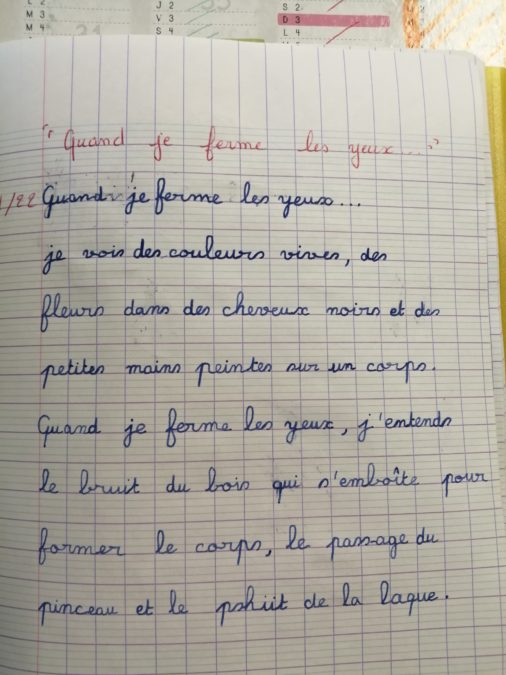 J 2
S 2
M 3
V 3
D 3
M 4
S 4
L 4
"Quand je ferme les yeux..."
/22 Quand je ferme les yeux...
je vois des couleurs vives, des
fleurs dans des cheveux noirs et des
petites mains peintes sur un corps.
Quand je ferme les yeux, j'entends
le bruit du bois qui s'emboîte pour
former le corps, le passage du
pinceau et le pshiit de la laque.